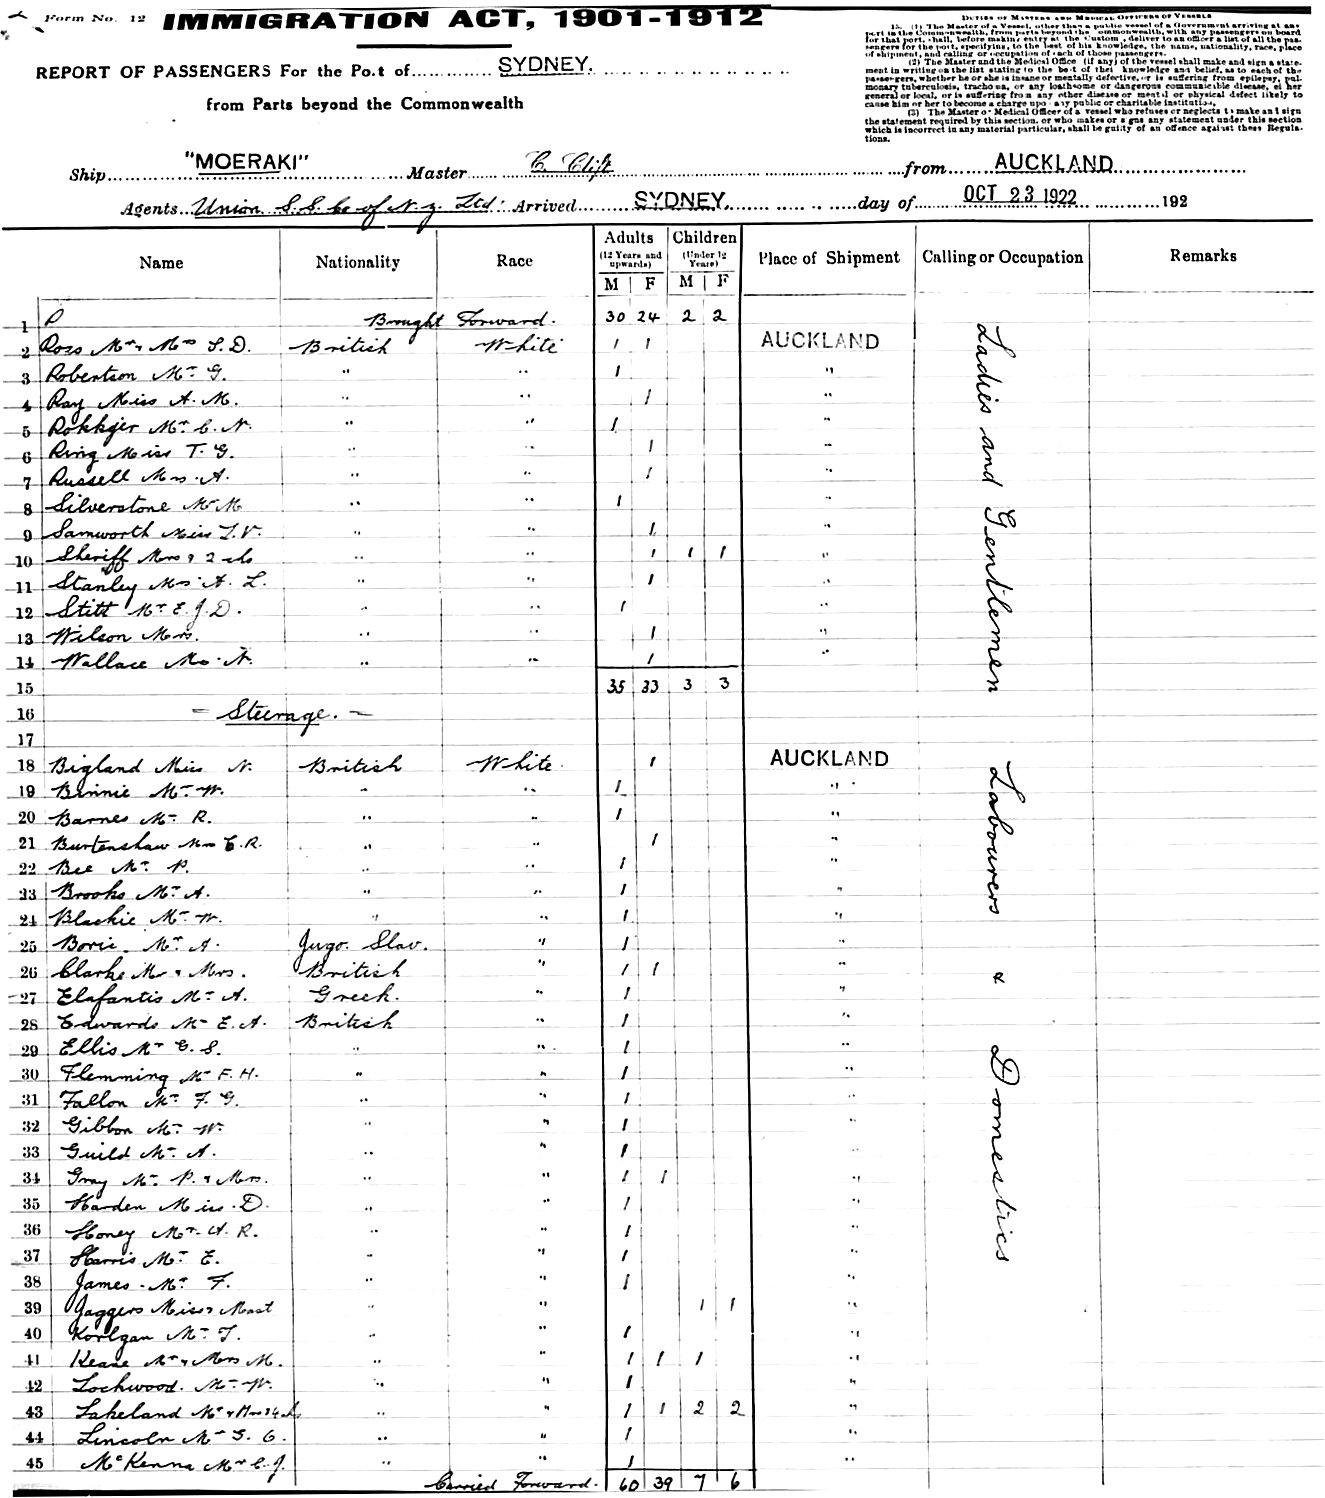 Form No. 12
IMMIGRATION ACT, 1901-1912
REPORT OF PASSENGERS For the Po.t of SYDNEY.
from Parts beyond the Commonwealth
DUTIES OF MASTERS AND MEDICAL OFFICERS OF VESSELS
15. (1) The Master of a Vessel, other than a public vessel of a Government arriving at any
port in the Commonwealth, from parts beyond the Commonwealth, with any passengers on board
for that port, shall, before making entry at the Custom, deliver to an officer a list of all the pas-
sengers for the port, specifying, to the best of his knowledge, the name, nationality, race, place
of shipment, and calling or occupation of each of those passengers.
(2) The Master and the Medical Office (if any) of the vessel shall make and sign a state-
ment in writing on the list stating to the best of their knowledge and belief, as to each of the
passengers, whether he or she is insane or mentally defective, or is suffering from epilepsy, pul-
monary tuberculosis, trachoma, or any loathsome or dangerous communicable disease, either
general or local, or is suffering from any other disease or mental or physical defect likely to
cause him or her to become a charge upon any public or charitable institution.
(3) The Master or Medical Officer of a vessel who refuses or neglects to make and sign
the statement required by this section, or who makes or signs any statement under this section
which is incorrect in any material particular, shall be guilty of an offence against these Regula-
tions.
Ship "MOERAKI" Master C. Clift from AUCKLAND
Agents Union S.S. Co of N.Z. Ltd. Arrived SYDNEY day of OCT 23 1922 192
Name Nationality Race Adults (12 Years and upwards) M F Children (Under 12 Years) M F Place of Shipment Calling or Occupation Remarks
1 P Brought Forward. 30 24 2 2
2 Ross Mr & Mrs S. D. British White 1 1 AUCKLAND
3 Robertson Mr G. " " 1 "
4 Ray Miss A. M. " " 1 "
5 Rokkjer Mr C. N. " " 1 "
6 Ring Miss T. G. " " 1 "
7 Russell Mrs. A. " " 1 "
8 Silverstone Mr M " " 1 "
9 Samworth Miss L. V. " " 1 "
10 Sheriff Mrs & 2 ch " " 1 1 1 "
11 Stanley Mrs A. L. " " 1 "
12 Stitt Mr E. J. D. " " 1 "
13 Wilson Mrs. " " 1 "
14 Wallace Mrs. N. " " 1 "
Ladies and Gentlemen
15 35 33 3 3
16 - Steerage. -
17
18 Bigland Miss N. British White. 1 AUCKLAND
19 Binnie Mr W. " " 1 "
20 Barnes Mr R. " " 1 "
21 Burtenshaw Mrs E. R. " " 1 "
22 Bee Mr P. " " 1 "
23 Brooks Mr A. " " 1 "
24 Blackie Mr W. " " 1 "
25 Boric. Mr A. Jugo. Slav. " 1 "
26 Clarke Mr & Mrs. British " 1 1 "
27 Elafantis Mr A. Greek. " 1 "
28 Edwards Mr E. A. British " 1 "
29 Ellis Mr C. S. " " 1 "
30 Flemming Mr F. H. " " 1 "
31 Fallon Mr F. G. " " 1 "
32 Gibbon Mr W. " " 1 "
33 Guild Mr A. " " 1 "
34 Gray Mr P. & Mrs. " " 1 1 "
35 Harden Miss. D. " " 1 "
36 Honey Mr A. R. " " 1 "
37 Harris Mr E. " " 1 "
38 James Mr F. " " 1 "
39 Jaggers Miss & Mast " " 1 1 "
40 Korlgan Mr T. " " 1 "
41 Keane Mr & Mrs M. " " 1 1 1 "
42 Lockwood. Mr W. " " 1 "
43 Lakeland Mr & Mrs & 4 ch " " 1 1 2 2 "
44 Lincoln Mr S. G. " " 1 "
45 McKenna Mr C. J. " " 1 "
Labourers & Domestics
Carried Forward. 60 39 7 6